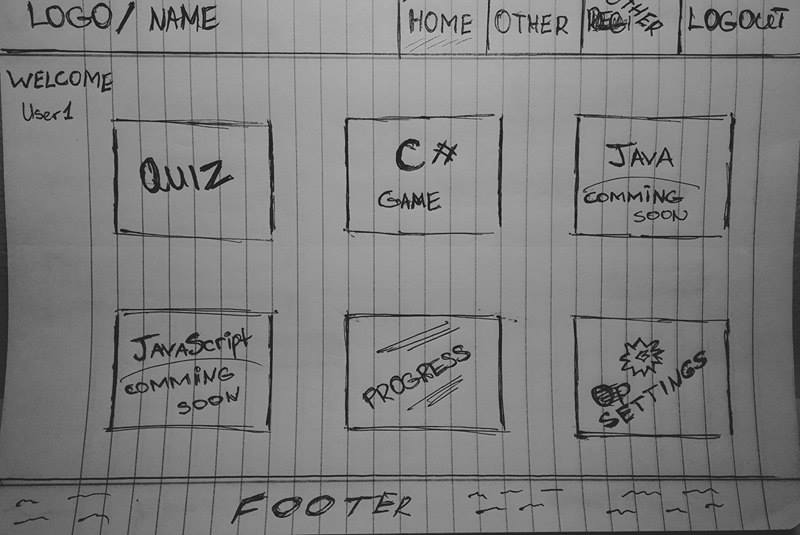 LOGO/ NAME
HOME
OTHER
OTHER
LOGOUT
WELCOME
User1
QUIZ
C#
GAME
JAVA
COMMING
SOON
JAVAScript
COMMING
SOON
PROGRESS
SETTINGS
FOOTER